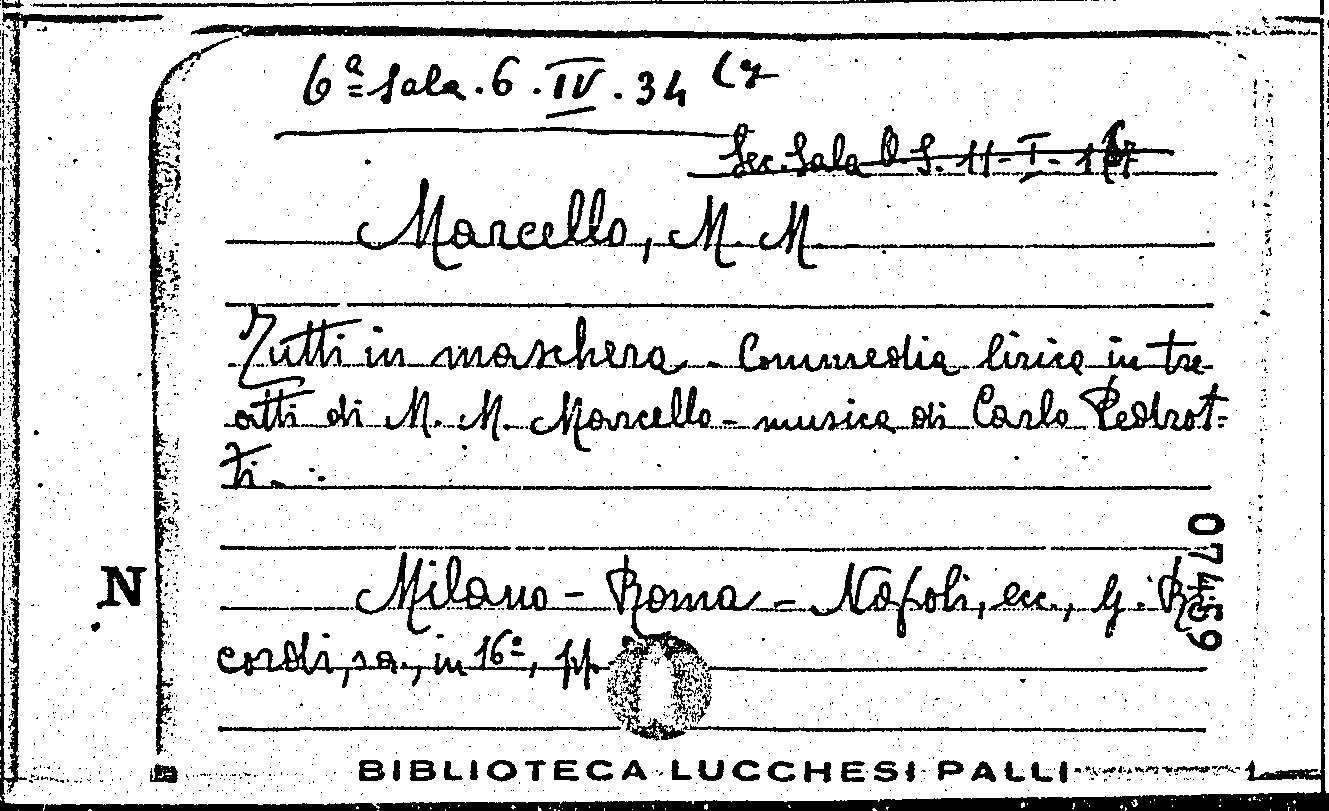 6ª Sala. 6. IV. 34 (7
Sec. Sala O. S. 11-I-
Marcello, M. M.
Tutti in maschera - Commedia lirica in tre
atti di M. M. Marcello - musica di Carlo Pedrot-
ti. -
N
Milano - Roma - Napoli, ecc., G. Ri
cordi, s.a., in 16º, pp.
07459
BIBLIOTECA LUCCHESI PALLI